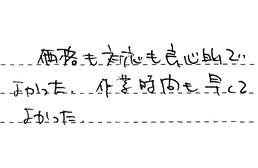 価格も対応も良心的で
よかった。作業時間も早くて
よかった。